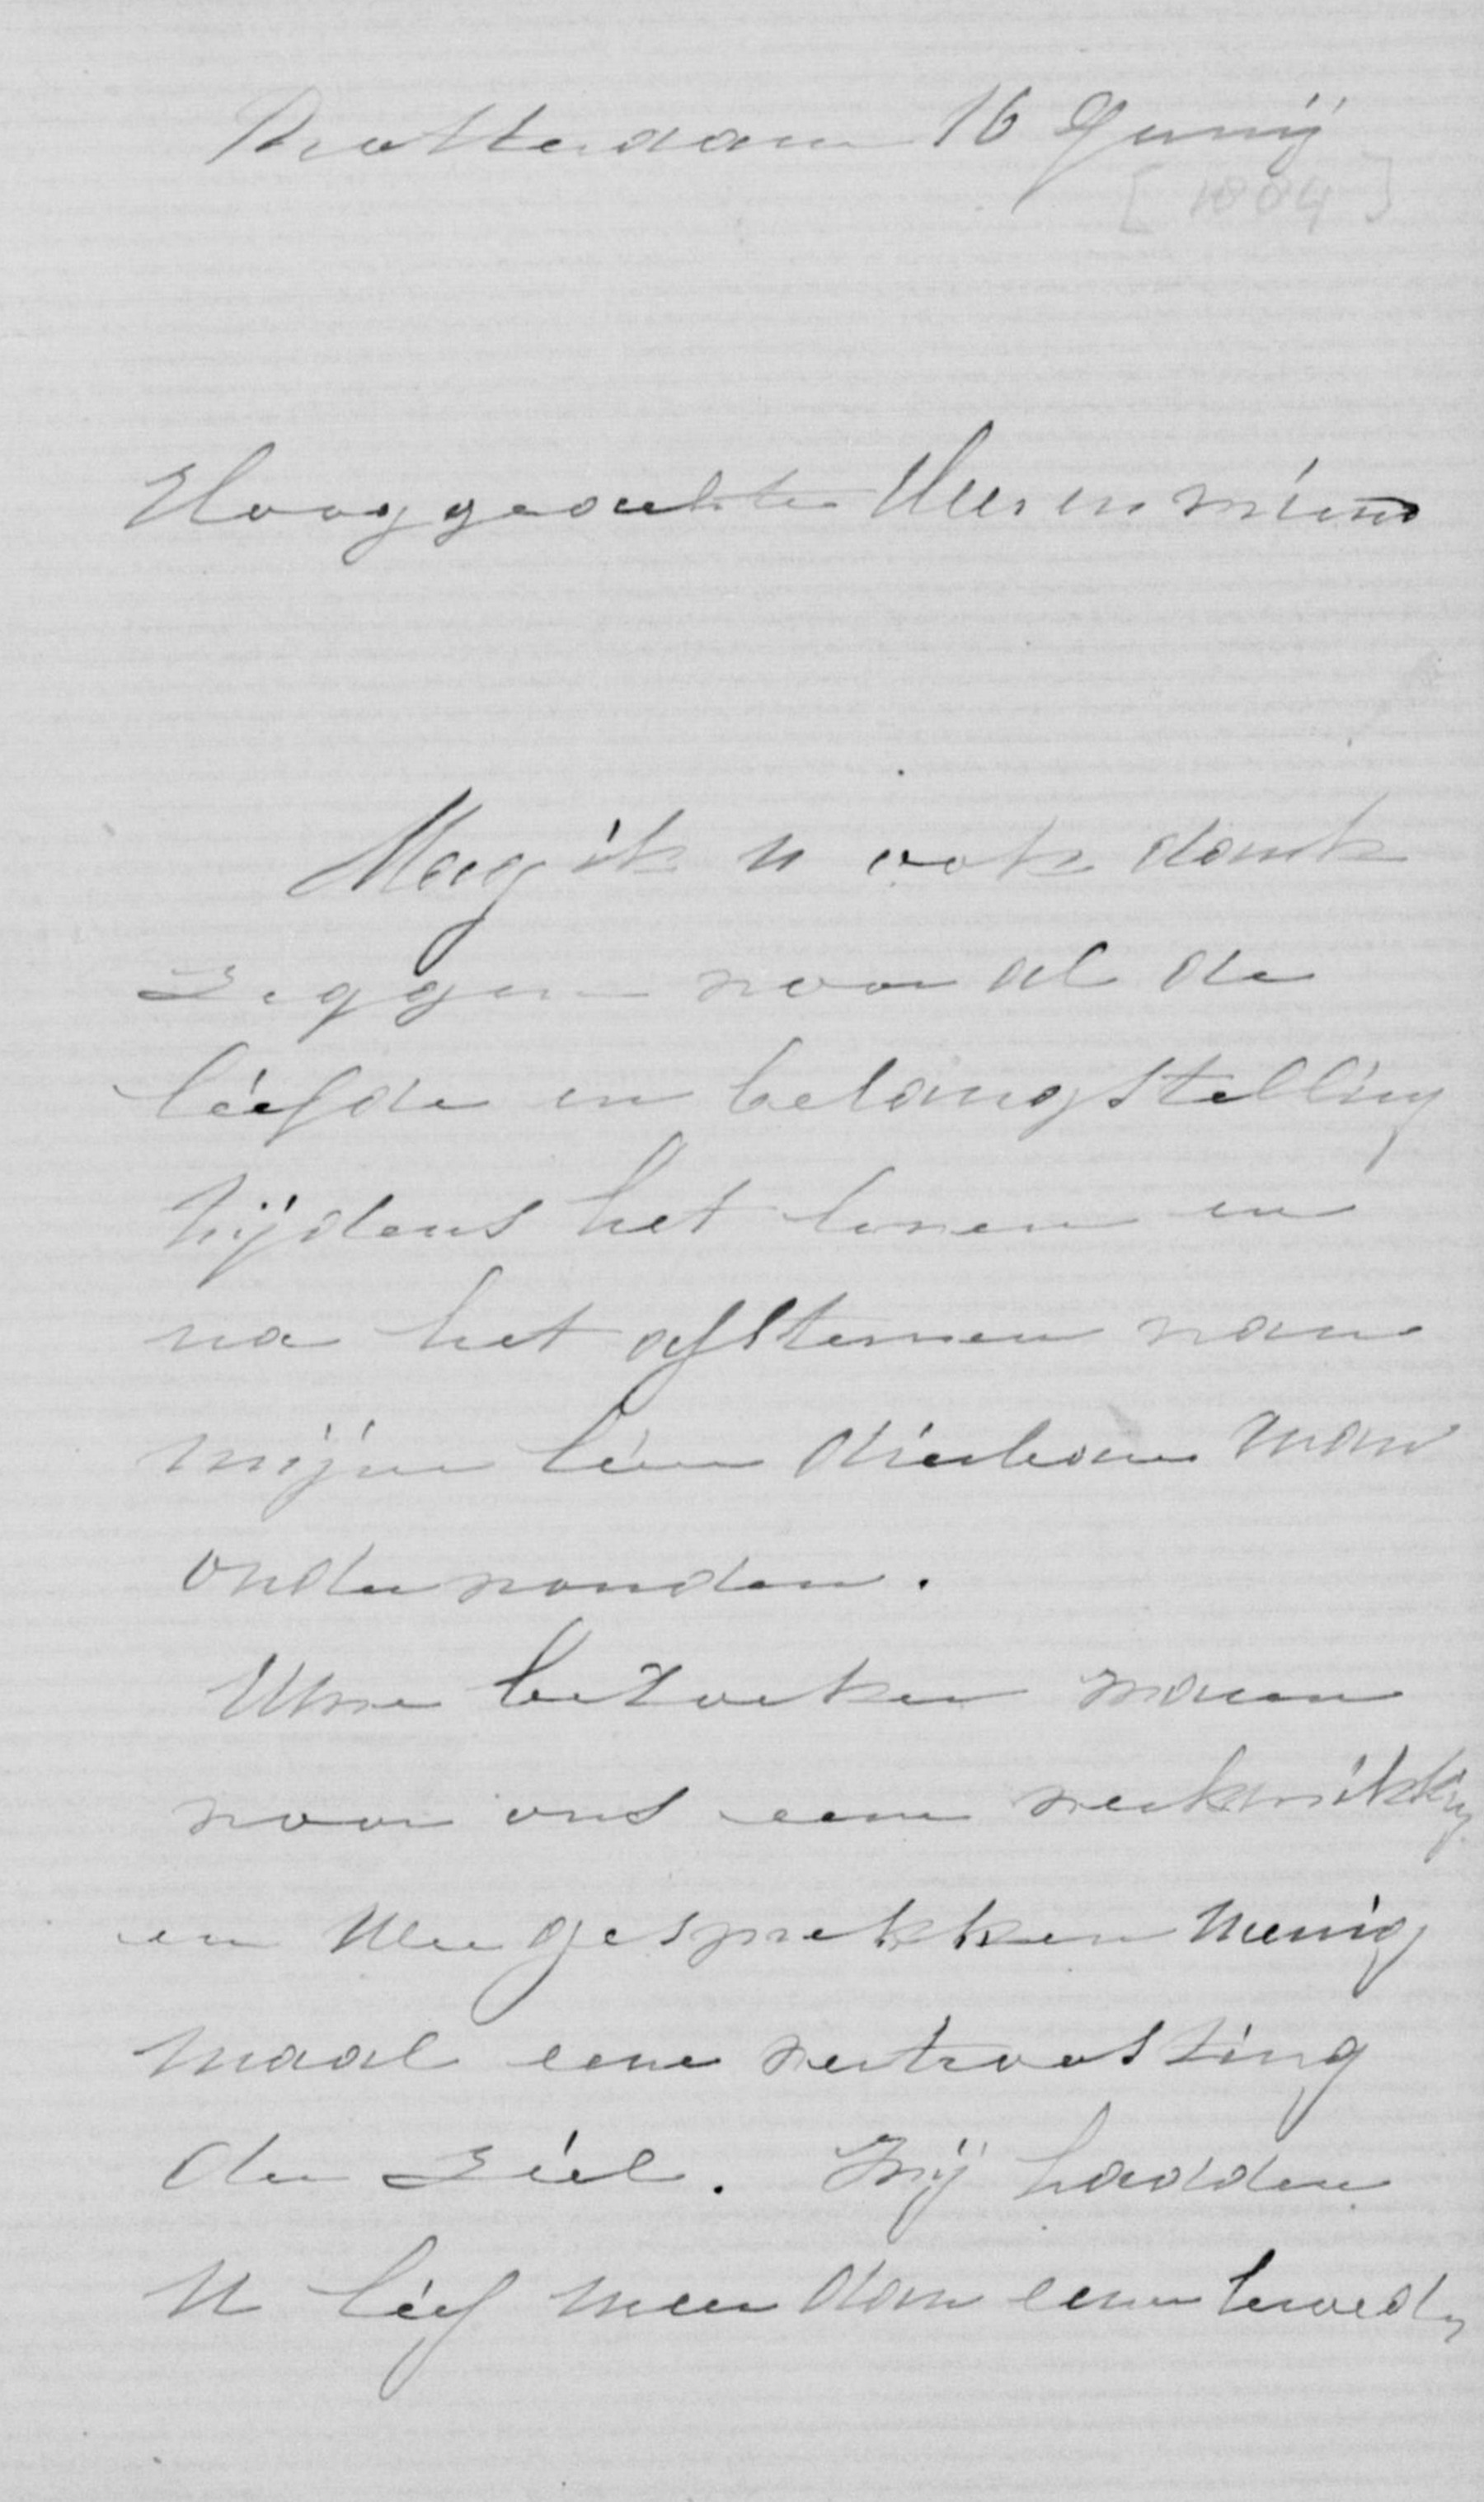 Rotterdam 16 Junij
[1884]
Hooggeachte Heer en vriend
Mag ik u ook dank
zeggen voor al de
liefde en belangstelling
tijdens het leven en
na het afsterven van
mijn lieve dierbare man
ondervonden.
Uwe bezoeken waren
voor ons eene verkwikking
en Uwe gesprekken menig
maal eene vertroosting
der ziel. Wij hadden
U lief meer dan eene broeder